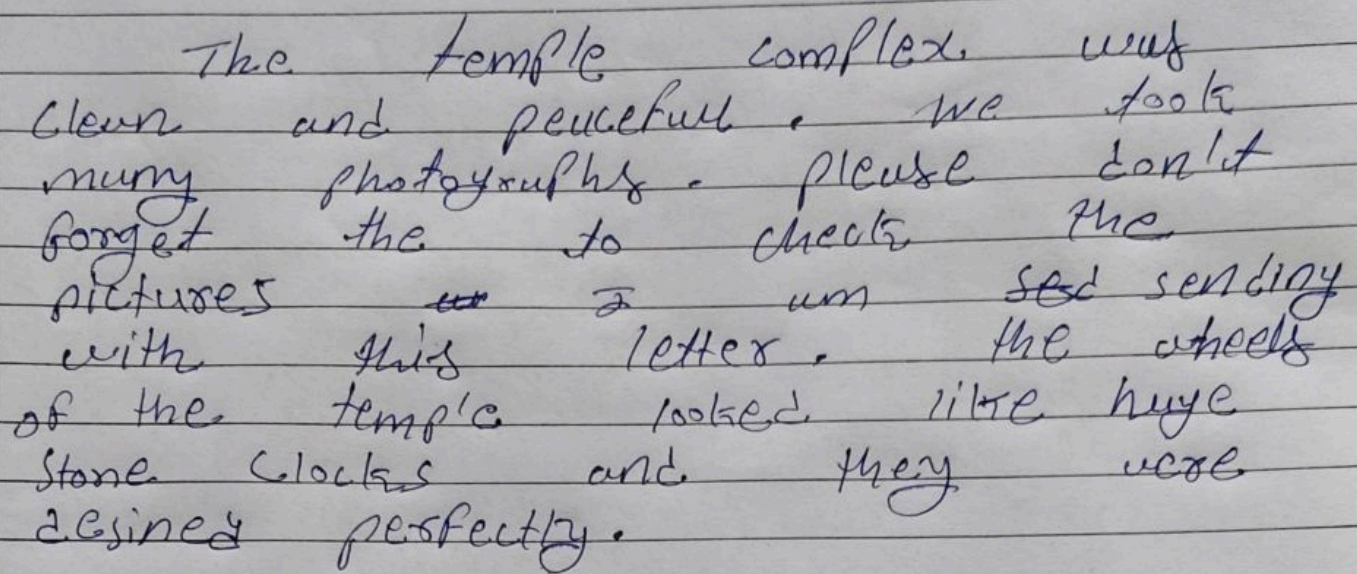 The temple complex was
clean and peacefull. We took
many photographs. please don't
forget the to check the
pictures I am sending
with this letter. the wheels
of the temple looked like huge
stone clocks and they were
desined perfectly.